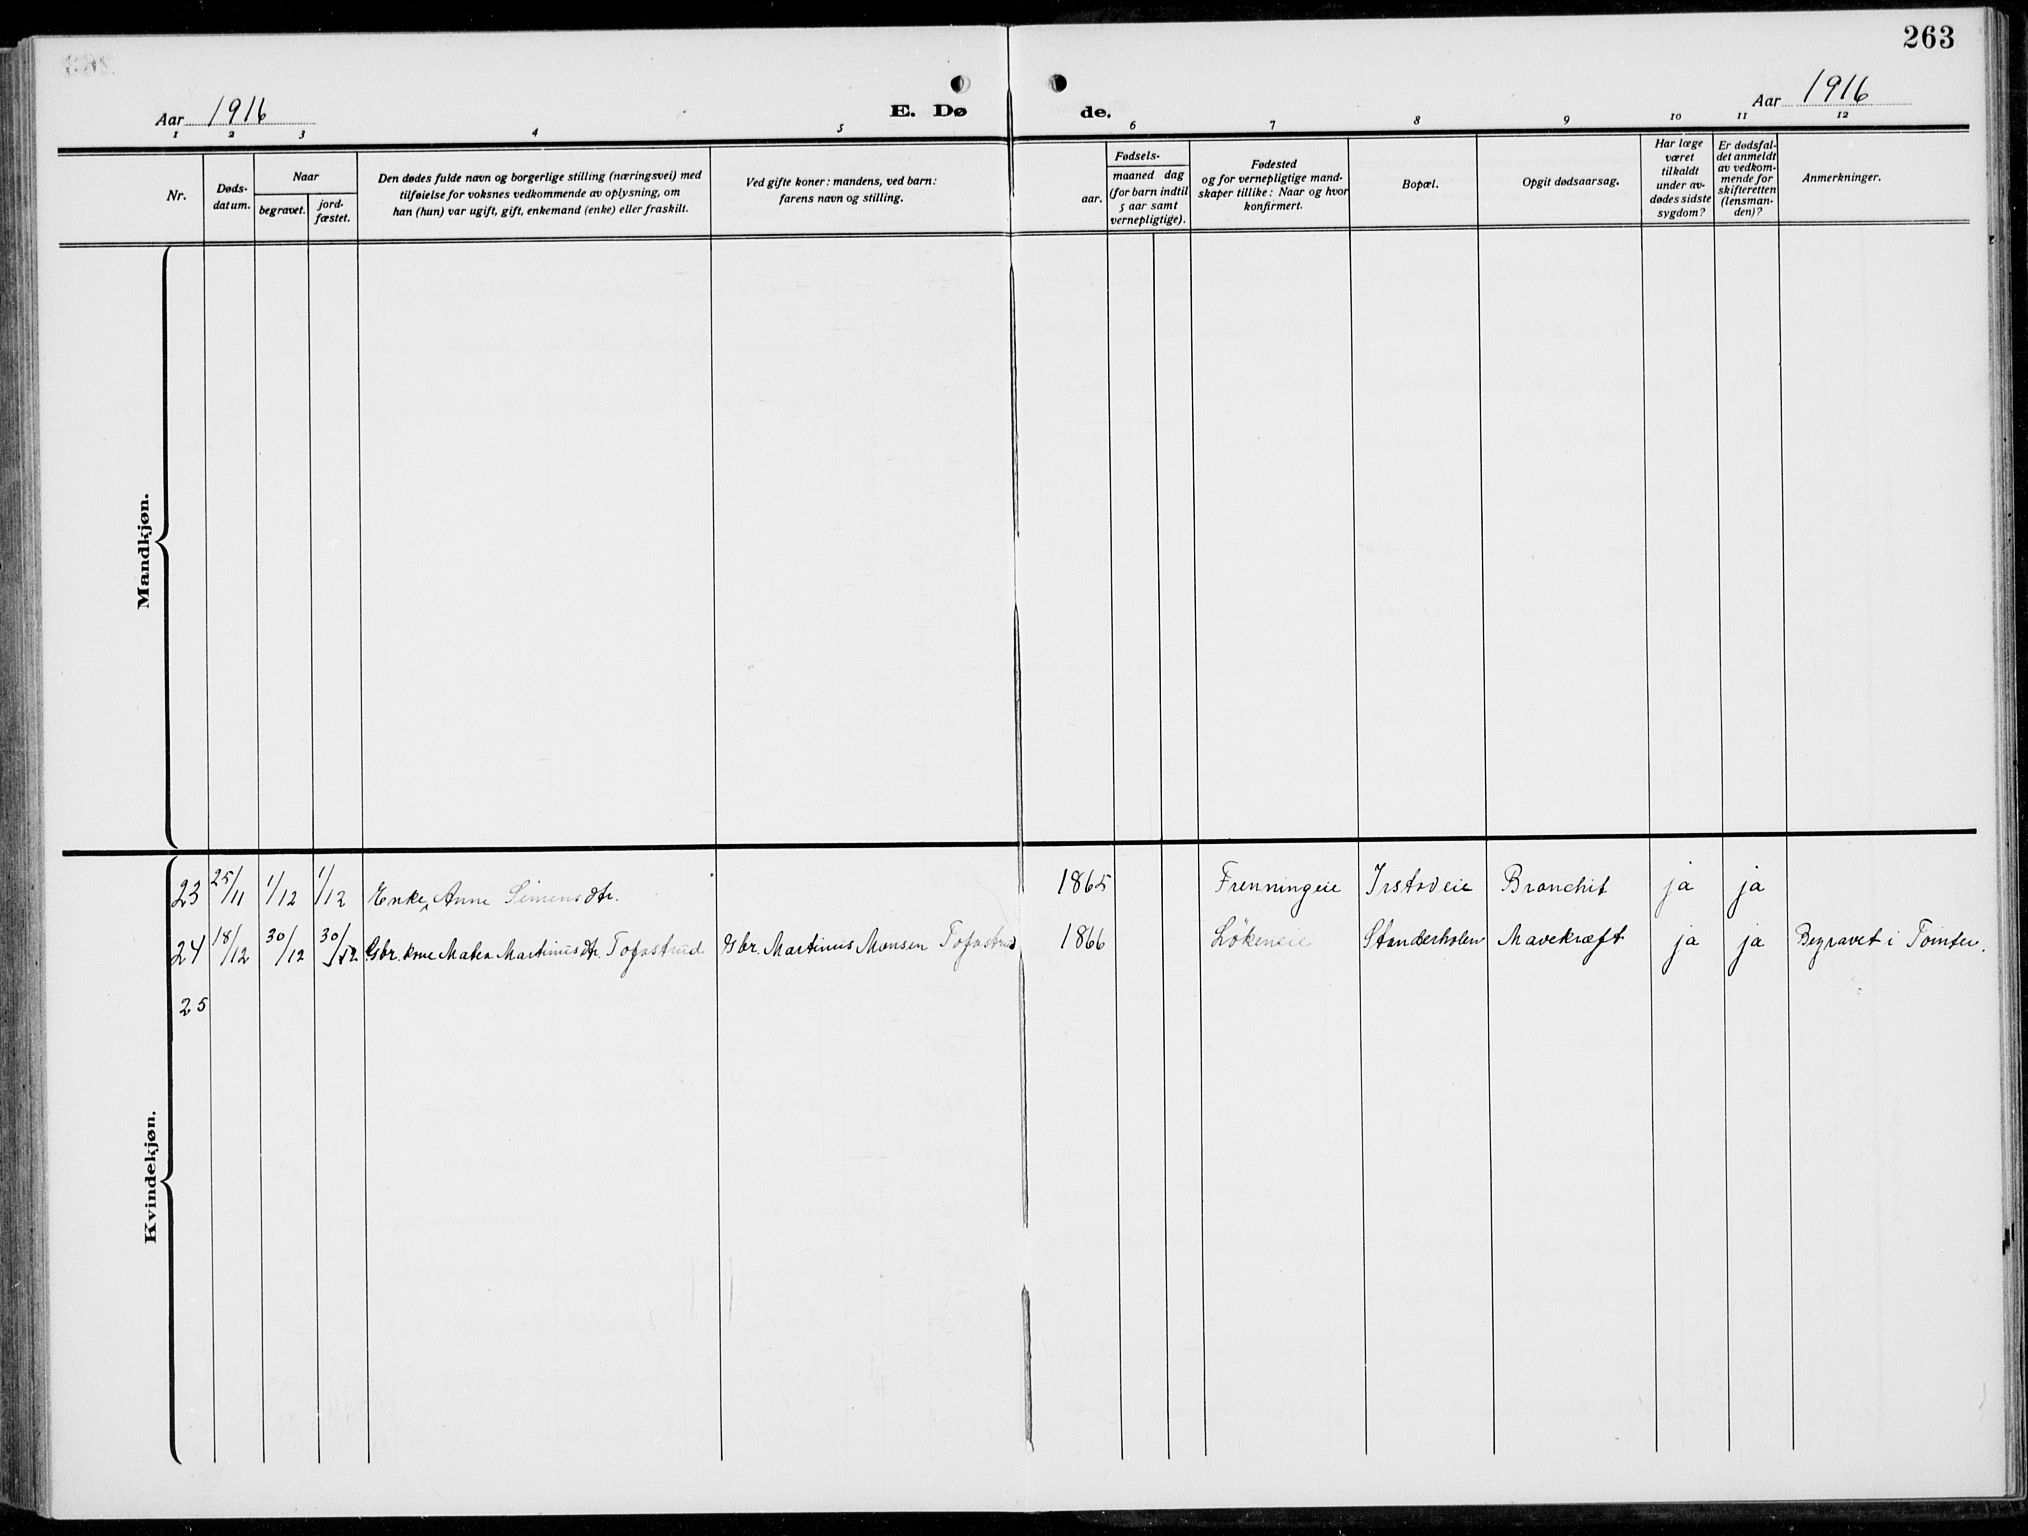 263
Aar 1916
E. Dø de.
Aar 1916
1 2 3 4 5 6 7 8 9 10 11 12
Nr.
Døds-
datum.
Naar
begravet.
jord-
fæstet.
Den dødes fulde navn og borgerlige stilling (næringsvei) med
tilføielse for voksnes vedkommende av oplysning, om
han (hun) var ugift, gift, enkemand (enke) eller fraskilt.
Ved gifte koner: mandens, ved barn:
farens navn og stilling.
Fødsels-
aar.
maaned dag
(for barn indtil
5 aar samt
vernepligtige).
Fødested
og for vernepligtige mand-
skaper tillike: Naar og hvor
konfirmert.
Bopæl.
Opgit dødsaarsag.
Har læge
været
tilkaldt
under av-
dødes sidste
sygdom?
Er dødsfal-
det anmeldt
av vedkom-
mende for
skifteretten
(lensman-
den)?
Anmerkninger.
Mandkjøn.
Kvindekjøn.
23 25/11 1/12 1/12 Enke Anne Simensdtr. 1865 Frenningeie Irstadeie Bronchit ja ja
24 18/12 30/12 30/12 Gbr. kone Matea Martinusdtr. Tofastrud Gbr. Martinus Monsen Tofastrud 1866 Lökeneie Stenderholen Mavekræft ja ja Begravet i Tomter.
25